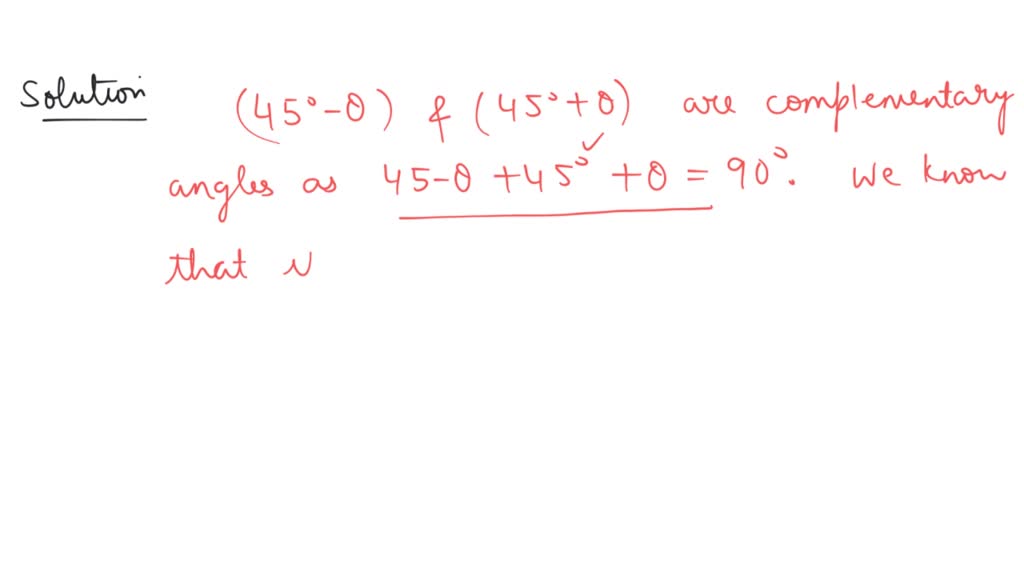 Solution (45°-θ) & (45°+θ) are complementary
angles as 45-θ +45° +θ = 90°. We know
that